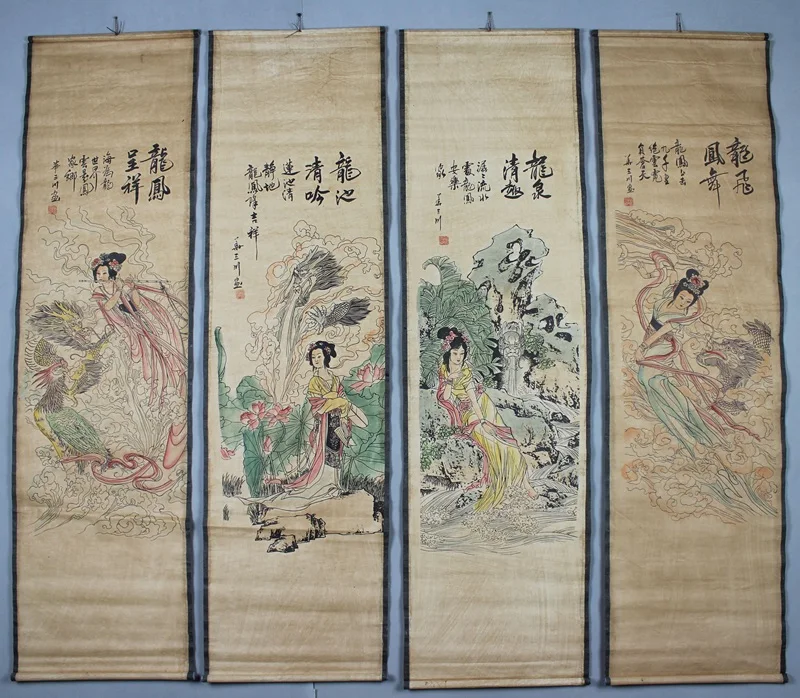 龍飛
鳳舞
龍鳳上
九千里
绝雲霓
負蒼天
華三川畫
龍泉
清趣
流水
龍鳳
安樂
華三川
龍池
清吟
蓮池清
静地
龍鳳降吉祥
華三川畫
龍鳳
呈祥
海為龍
世界
雲是鳳
家鄉
華三川畫